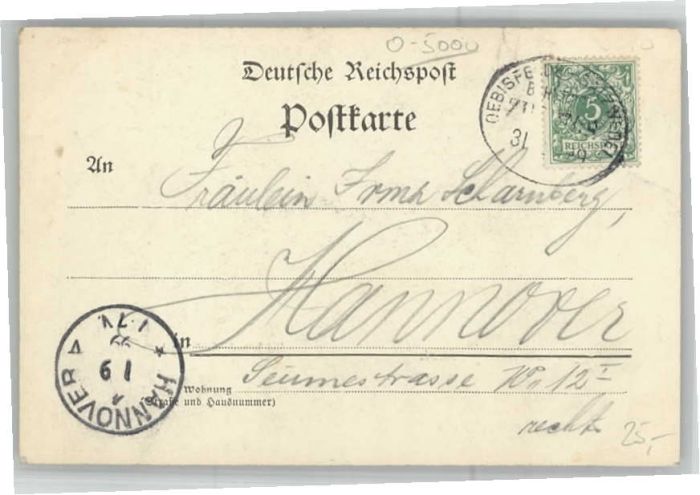 0-5000
Deutsche Reichspost
Postkarte
An
Fräulein Irma Scharnberg,
Hannover
in
Seumestrasse No 12 I
rechts
Wohnung
(Straße und Hausnummer)
OEBISFELDE
BHN
31
5
REICHSPOST
HANNOVER
1 9
99
25,-